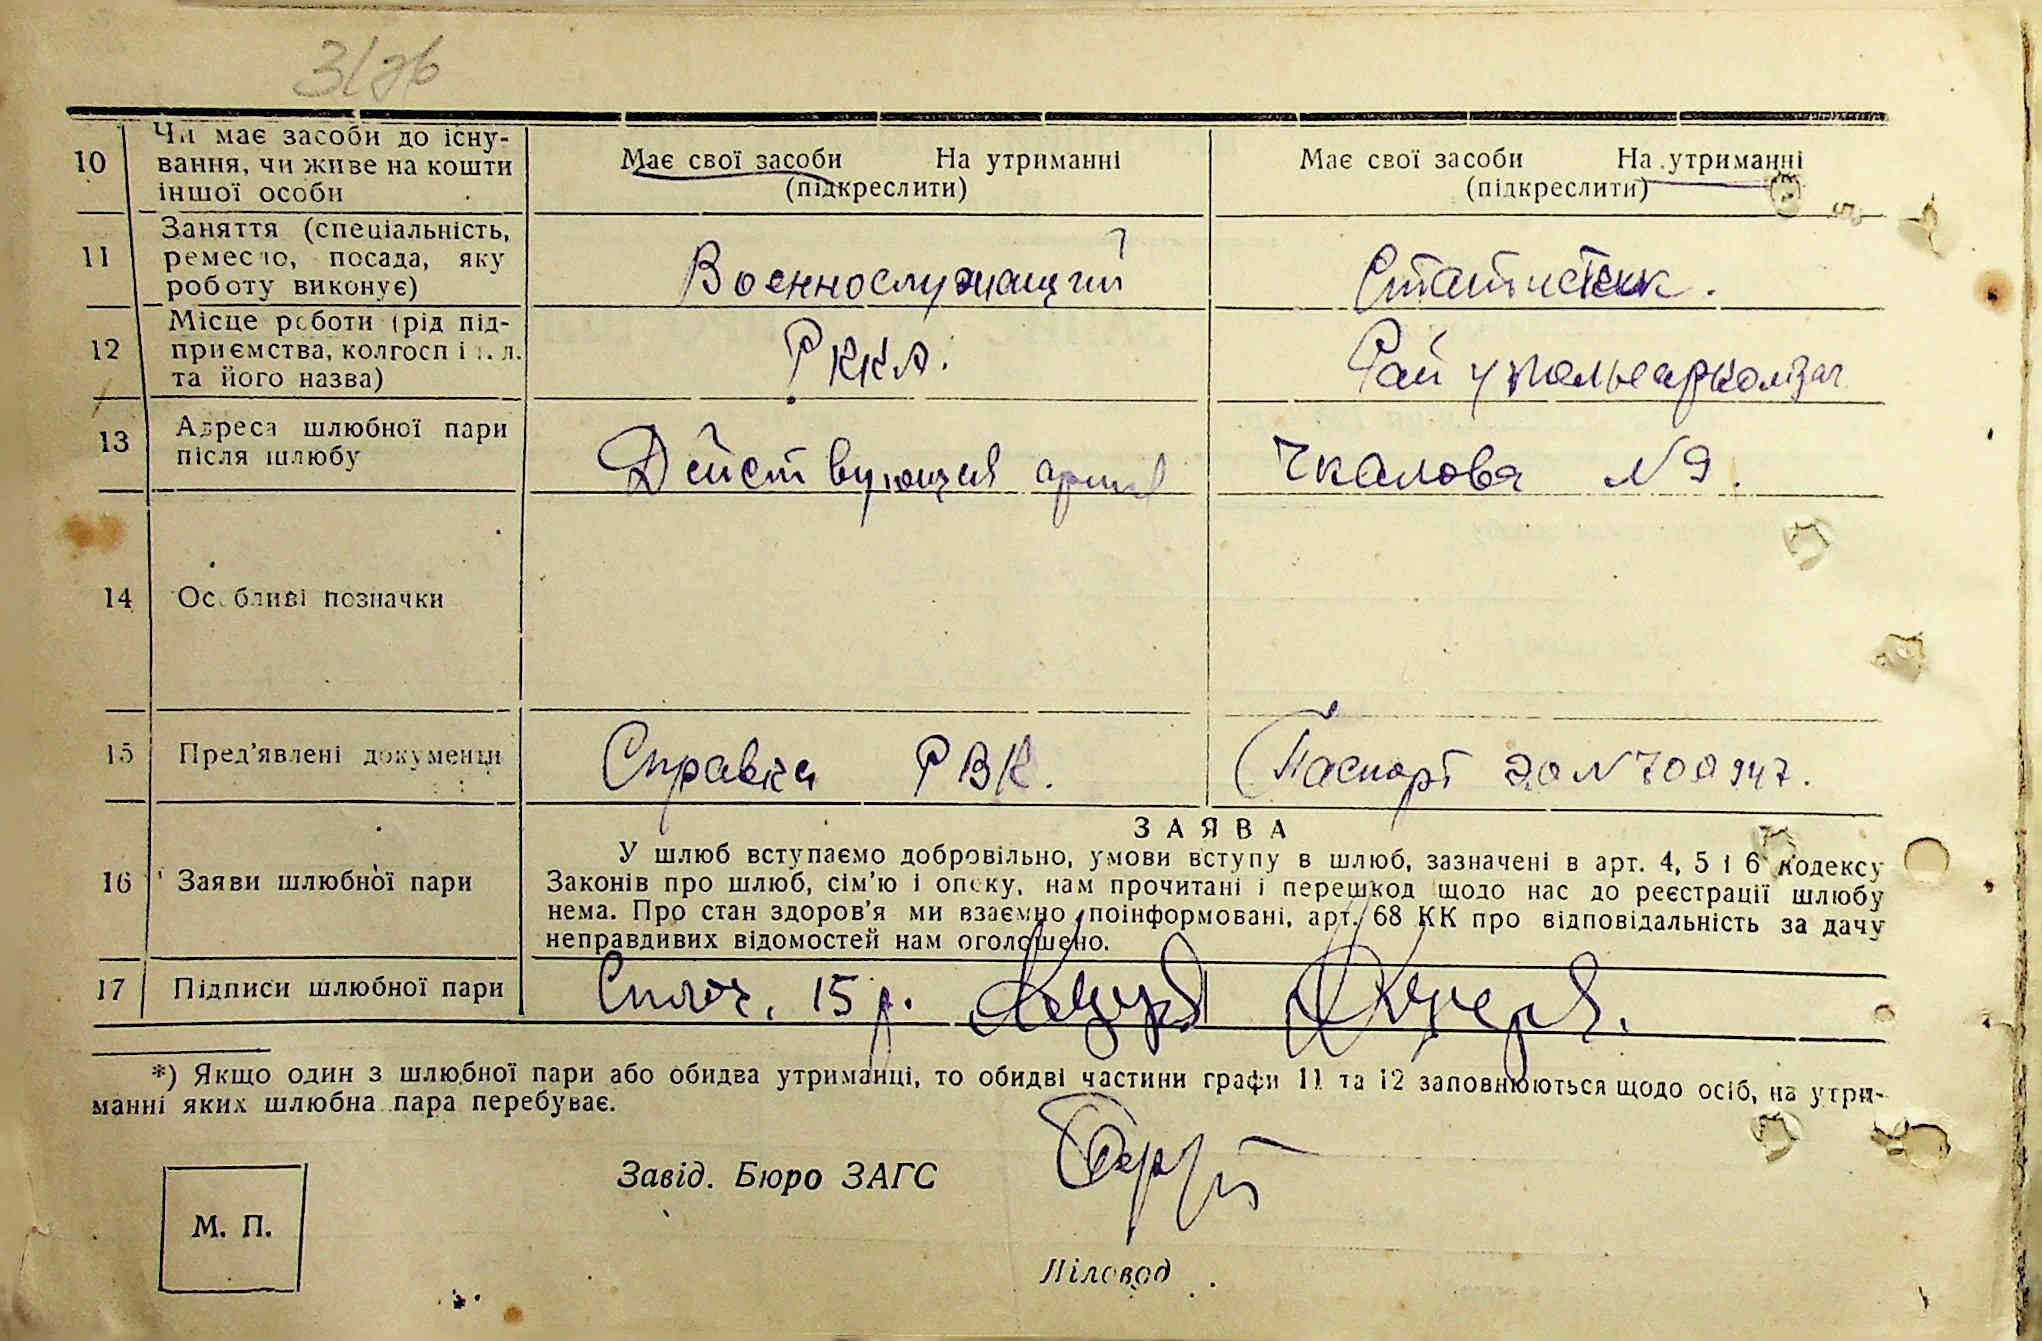 31
10 Чи має засоби до існу-
вання, чи живе на кошти
іншої особи
Має свої засоби На утриманні
(підкреслити)
Має свої засоби На утриманні
(підкреслити)
11 Заняття (спеціальність,
ремесло, посада, яку
роботу виконує)
Военнослужащий
Статистик.
12 Місце роботи (рід під-
приємства, колгосп і т. п.
та його назва)
РККА.
Рай
13 Адреса шлюбної пари
після шлюбу
Действующая армия
Чкалова № 9.
14 Особливі позначки
15 Пред'явлені документи
Справка РВК.
Паспорт № 700947.
16 Заяви шлюбної пари
ЗАЯВА
У шлюб вступаємо добровільно, умови вступу в шлюб, зазначені в арт. 4, 5 і 6 кодексу
Законів про шлюб, сім'ю і опеку, нам прочитані і перешкод щодо нас до реєстрації шлюбу
нема. Про стан здоров'я ми взаємно поінформовані, арт. 68 КК про відповідальність за дачу
неправдивих відомостей нам оголошено.
17 Підписи шлюбної пари
15 р.
*) Якщо один з шлюбної пари або обидва утриманці, то обидві частини графи 11 та 12 заповнюються щодо осіб, на утри-
манні яких шлюбна пара перебуває.
Завід. Бюро ЗАГС
М. П.
Діловод